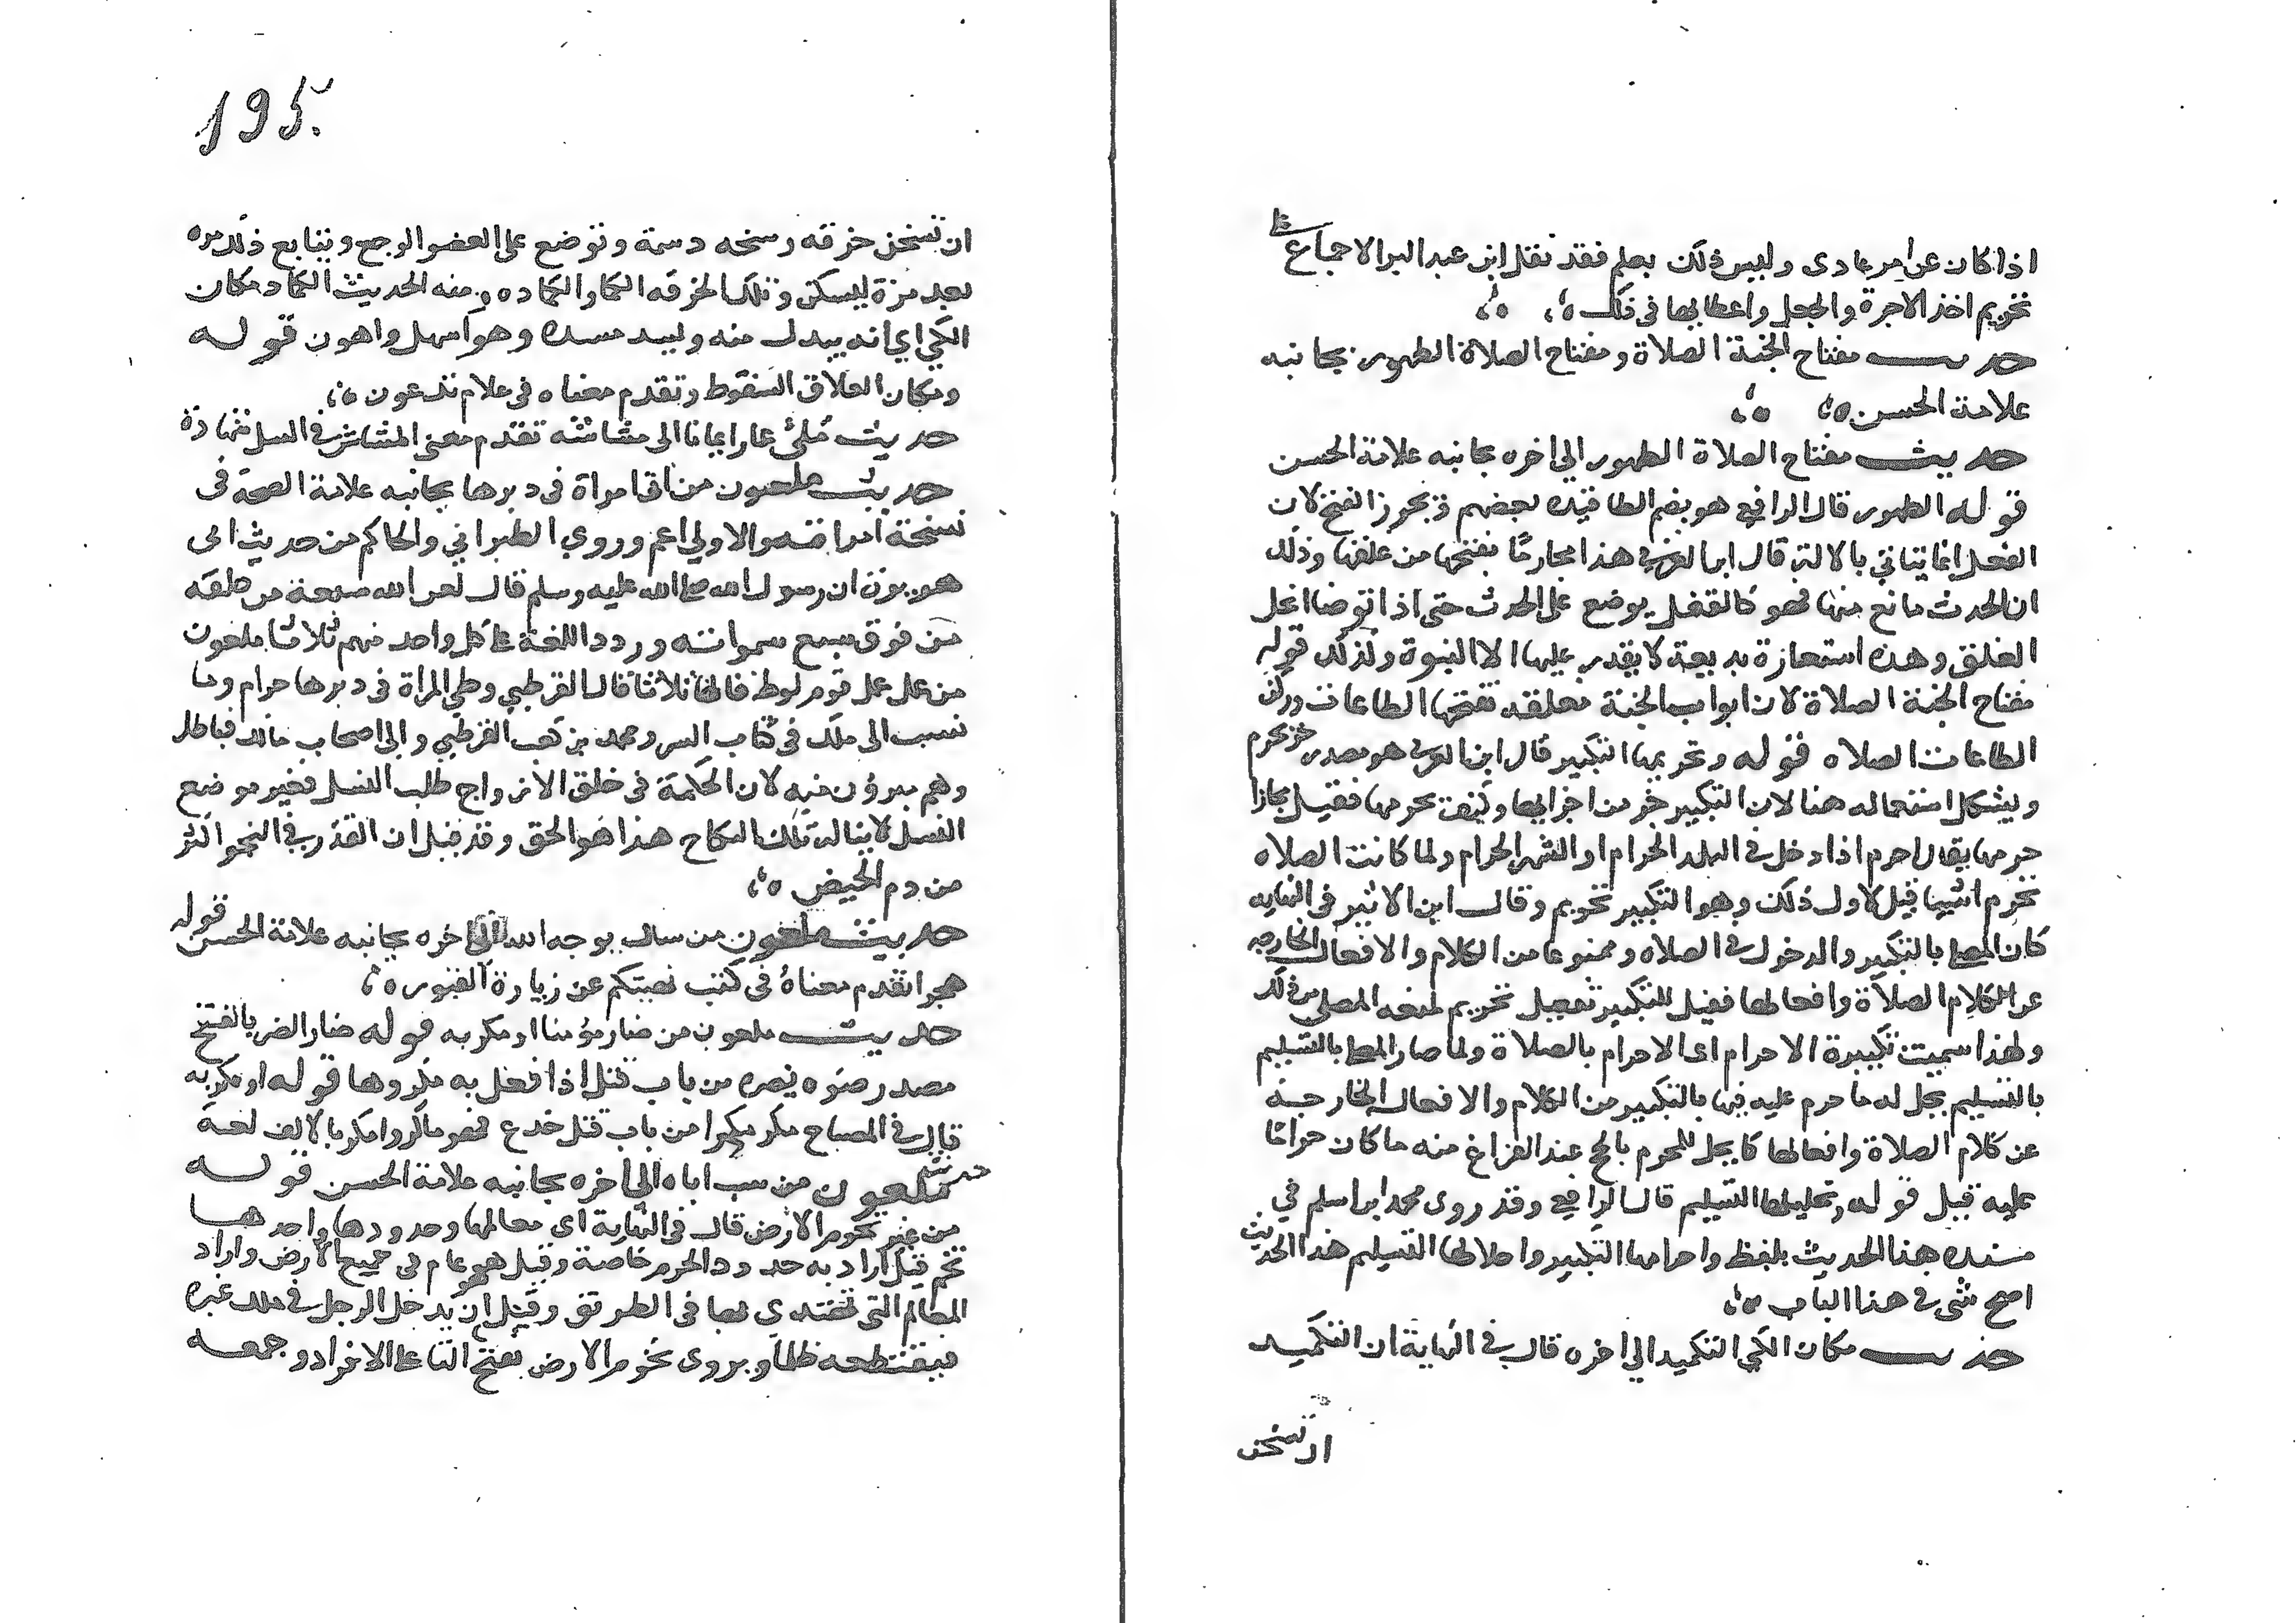 اذا كان عن امر عادى وليس ذلك بعلم فقد نقل ابن عبد البر الاجماع على
تحريم اخذ الاجرة والجعل واعطايها فى ذلك
حديث مفتاح الجنة الصلاة ومفتاح الصلاة الطهور بجانبه
علامة الحسن
حديث مفتاح الصلاة الطهور الي اخره بجانبه علامة الحسن
قوله الطهور قال الرافعي هو بضم الطا قيده بعضهم ويجوز الفتح لان
الفعل انما يتاتي بالالة قال ابن العربي هذا مجاز ما يفتحها من غلقها وذلك
ان الحدث مانع منها فهو كالقفل يوضع على الحدث حتى اذا توضا انحل
الغلق وهذه استعارة بديعة لا يقدر عليها الا النبوة وكذلك قوله
مفتاح الجنة الصلاة لان ابواب الجنة مغلقه تفتحها الطاعات وركن
الطاعات الصلاه قوله وتحريمها التكبير قال ابن العربي هو مصدر حرم يحرم
ويشكل استعماله هنا لان التكبير جز من اجزايها وكيف يحرمها فقيل مجازا
حرمها يقال احرم اذا دخل في البلد الحرام او الشهر الحرام ولما كانت الصلاه
تحرم اشيا قيل لاول ذلك وهو التكبير تحريم وقال ابن الاثير فى النهايه
كان المصلى بالتكبير والدخول في الصلاه وممنوعا من الكلام والافعال الخارجه
عن الكلام الصلاة وافعالها فقيل للتكبير تحريم لمنعه المصلى من ذلك
ولهذا سميت تكبيرة الاحرام اى الاحرام بالصلاة ولما صار المصلى بالتسليم
بالتسليم يحل له ما حرم عليه فيها بالتكبير من الكلام والافعال الخارجة
عن كلام الصلاة وافعالها كما يحل للمحرم بالحج عند الفراغ منه ما كان حراما
عليه قبل قوله وتحليلها التسليم قال الرافعي وقد روى محمد ابن اسلم في
مسنده هذا الحديث بلفظ واحرامها التكبير واحلالها التسليم هذا الحديث
اصح شى في هذا الباب
حديث مكان الكي التكميد الي اخره قال في النهاية ان التكميد
ان تسخن
195
ان تسخن خرقه وسخه دسمة وتوضع على العضو الوجع ويتابع ذلك مره
بعد مرة ليسكن وتلك الخرقه الكما والكماده ومنه الحديث الكماد مكان
الكي اي انه يبدل منه ويسد مسده وهو اسهل واهون قوله
ومكان العلاق السعوط وتقدم معناه فى علام تدعون
حديث ملئ عمار ايمانا الى مشاشه تقدم معنى المشاش في
حديث ملعون من اتى امراة فى دبرها بجانبه علامة الصحة فى
نسخة امراته والاولي اعم وروي الطبراني والحاكم من حديث ابى
هريرة ان رسول الله صلى الله عليه وسلم قال لعن الله سبعة من خلقه
من فوق سبع سمواته وردد اللعنة على كل واحد منهم ثلاثا ملعون
من عمل عمل قوم لوط قالها ثلاثا قال القرطبي وطي المراة فى دبرها حرام وما
نسب الى ملك فى كتاب السر ومحمد بن كعب القرظي والى اصحاب مالك فباطل
وهم مبرؤن منه لان الحكمة فى خلق الازواج طلب النسل فغير موضع
النسل لا يناله ذلك النكاح هذا هو الحق وقد قيل ان القذر في النجو اكثر
من دم الحيض
حديث ملعون من سال بوجه الله الى اخره بجانبه علامة الحسن قوله
هجرا تقدم معناه فى كنت نهيتكم عن زيارة القبور
حديث ملعون من ضار مؤمنا او مكر به قوله ضار الضر بالفتح
مصدر ضره يضره من باب قتل اذا فعل به مكروها قوله او مكر به
قال فى المصباح مكر مكرا من باب قتل خدع فهو ماكر وامكر بالالف لغة
حديث ملعون من سب اباه الي اخره بجانبه علامة الحسن قوله
من غير تخوم الارض قال فى النهاية اى معالمها وحدودها واحدها
تخم قيل اراد به حدود الحرم خاصة وقيل هو عام فى جميع الارض واراد
المعالم التى تهتدى بها فى الطريق وقيل هو ان يدخل الرجل في ملك غيره
فيقتطعه ظلما ويروى تخوم الارض بفتح التا على الافراد وجمعه